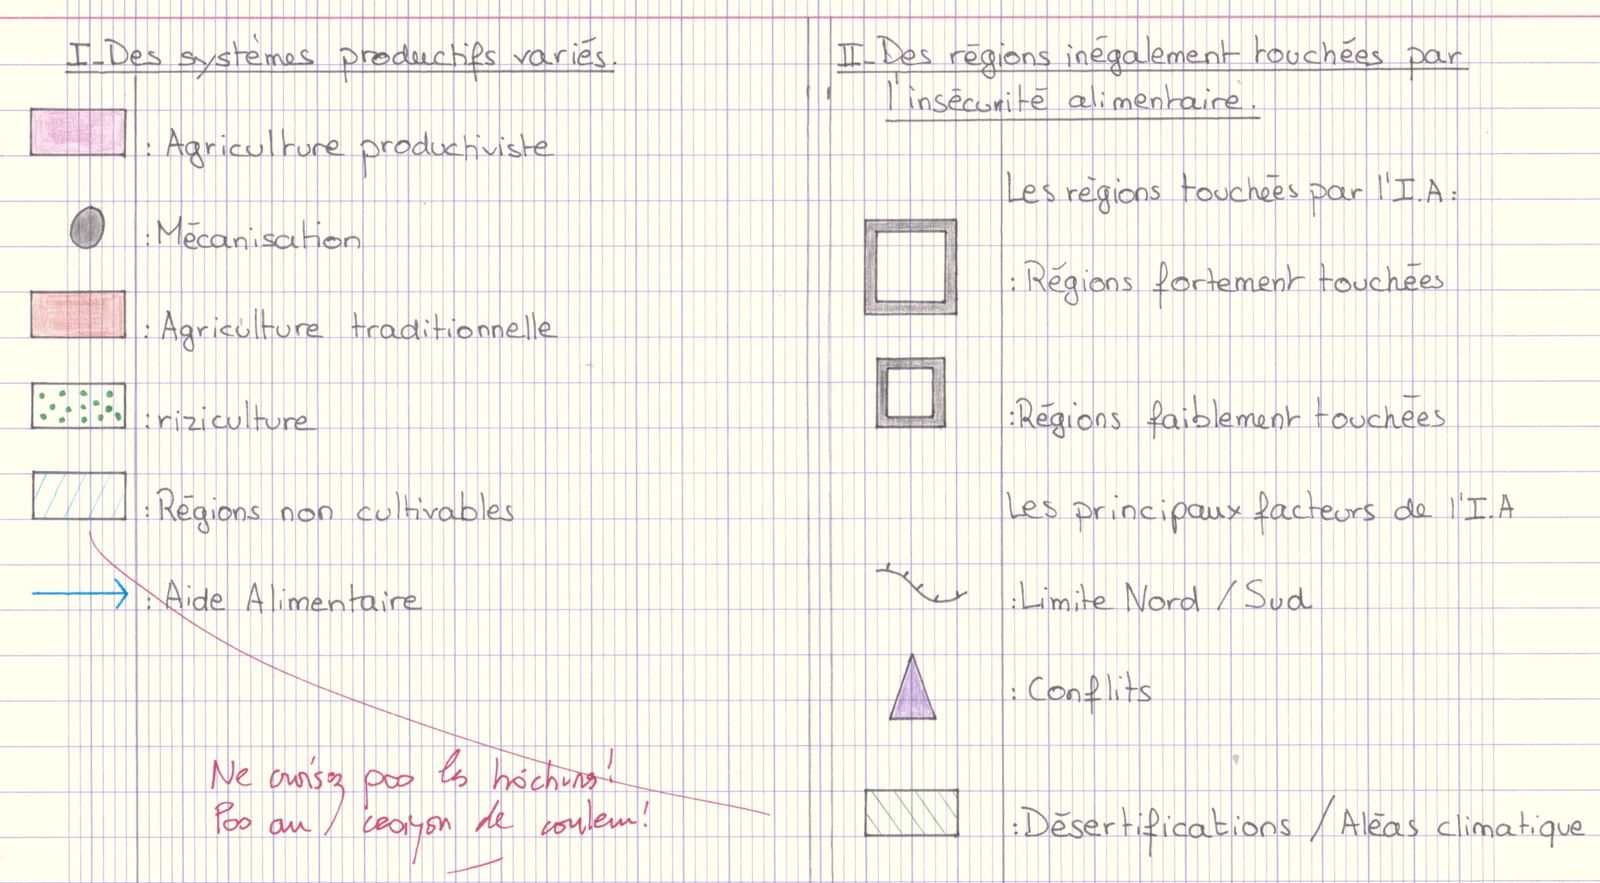 I-Des systèmes productifs variés.
: Agriculture productiviste
: Mécanisation
: Agriculture traditionnelle
: riziculture
: Régions non cultivables
: Aide Alimentaire
Ne croisez pas les hachures!
Pas au crayon de couleur!
II-Des régions inégalement touchées par
l'insécurité alimentaire.
Les régions touchées par l'I.A:
: Régions fortement touchées
: Régions faiblement touchées
Les principaux facteurs de l'I.A
: Limite Nord / Sud
: Conflits
: Désertifications / Aléas climatique